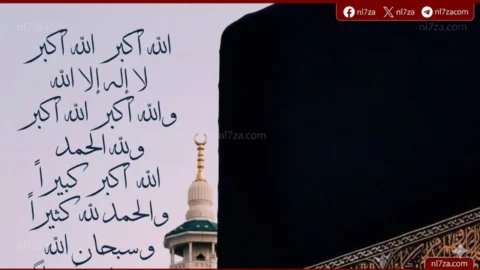 nl7za nl7za nl7zacom
nl7za.com
الله أكبر الله أكبر
لا إله إلا الله
والله أكبر الله أكبر
ولله الحمد
nl7za.com
الله أكبر كبيراً
والحمد لله كثيراً
وسبحان الله
nl7za.com